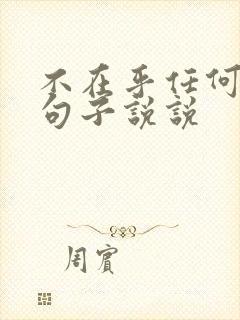 不在乎任何
句子説説
周賓